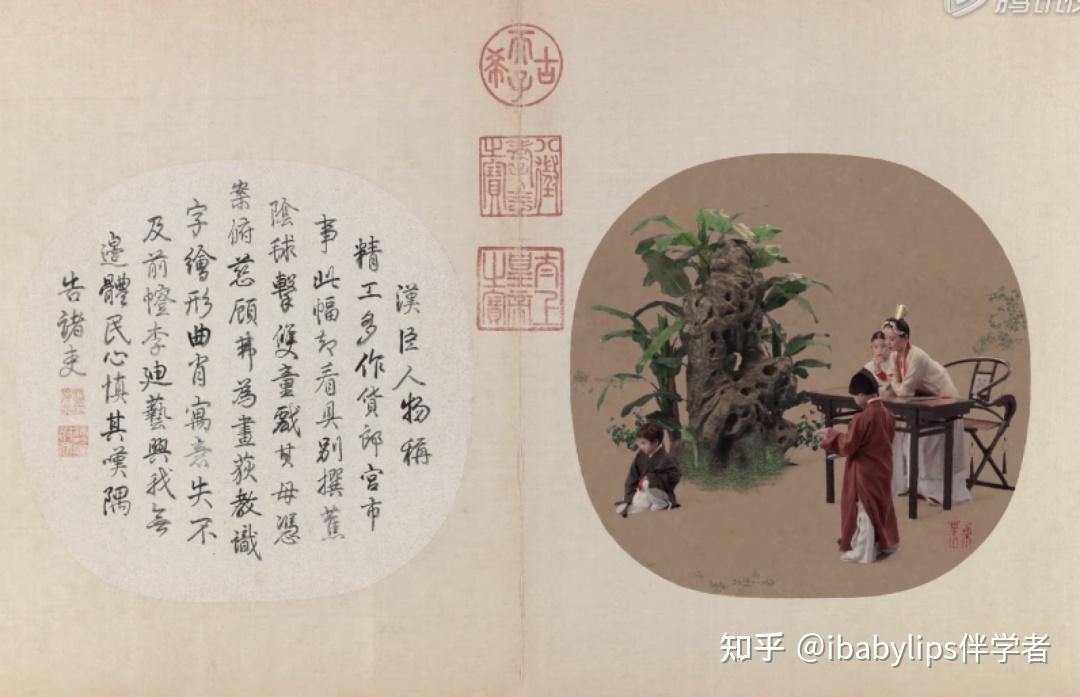 漢臣人物稱
精工多作貨郎宮市
事此幅却看具別撰蕉
陰球擊雙童戲其母憑
案俯慈顧弗為畫荻教識
字繪形曲肖寓意失不
及前幨李廸藝興我無
邊體民心慎其嘆隅
告諸吏
古希天子
八徵耄念之寶
太上皇帝之寶
知乎 @ibabylips伴学者